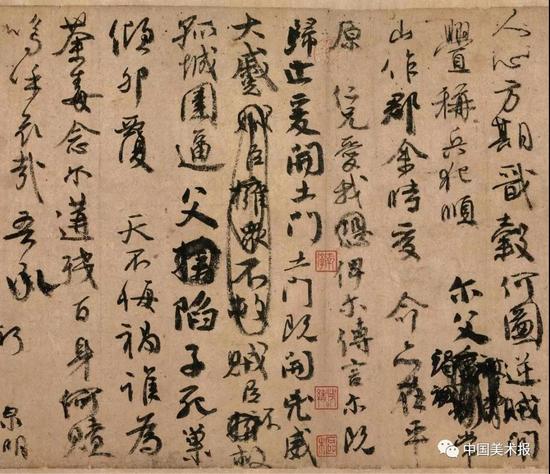 人心方期戩穀何圖逆賊間
釁稱兵犯順 尔父竭誠
山作郡余時受 命亦在平
原 仁兄愛我恐俾尔傳言尔既
歸止爰開土門土門既開凶威
大蹙賊臣擁衆不救賊臣不救
孤城圍逼父擒陷子死巢
傾卵覆 天不悔禍誰為
荼毒念尔遘殘百身何贖
嗚呼哀哉吾承
泉明
中国美术报